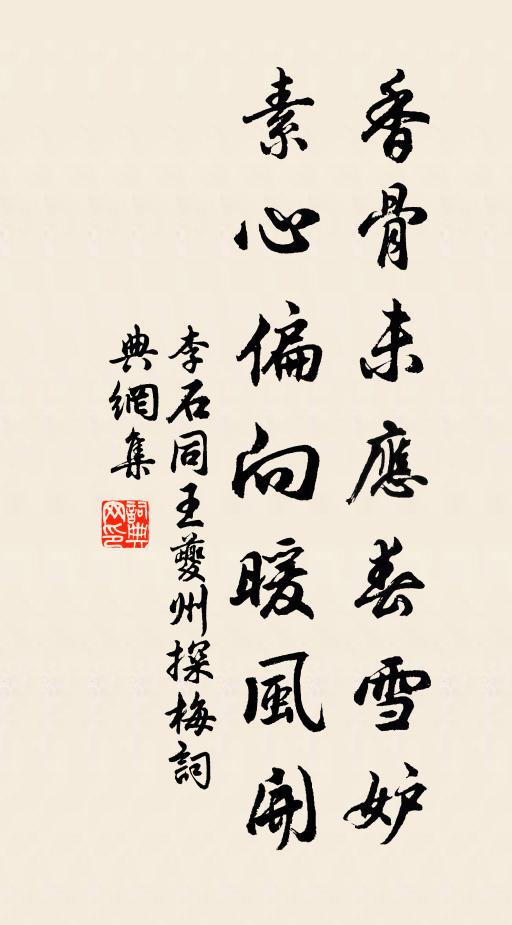 香骨未應春雪妒
素心偏向暖風開
李石同王夔州探梅詞
典網集
詞典網印